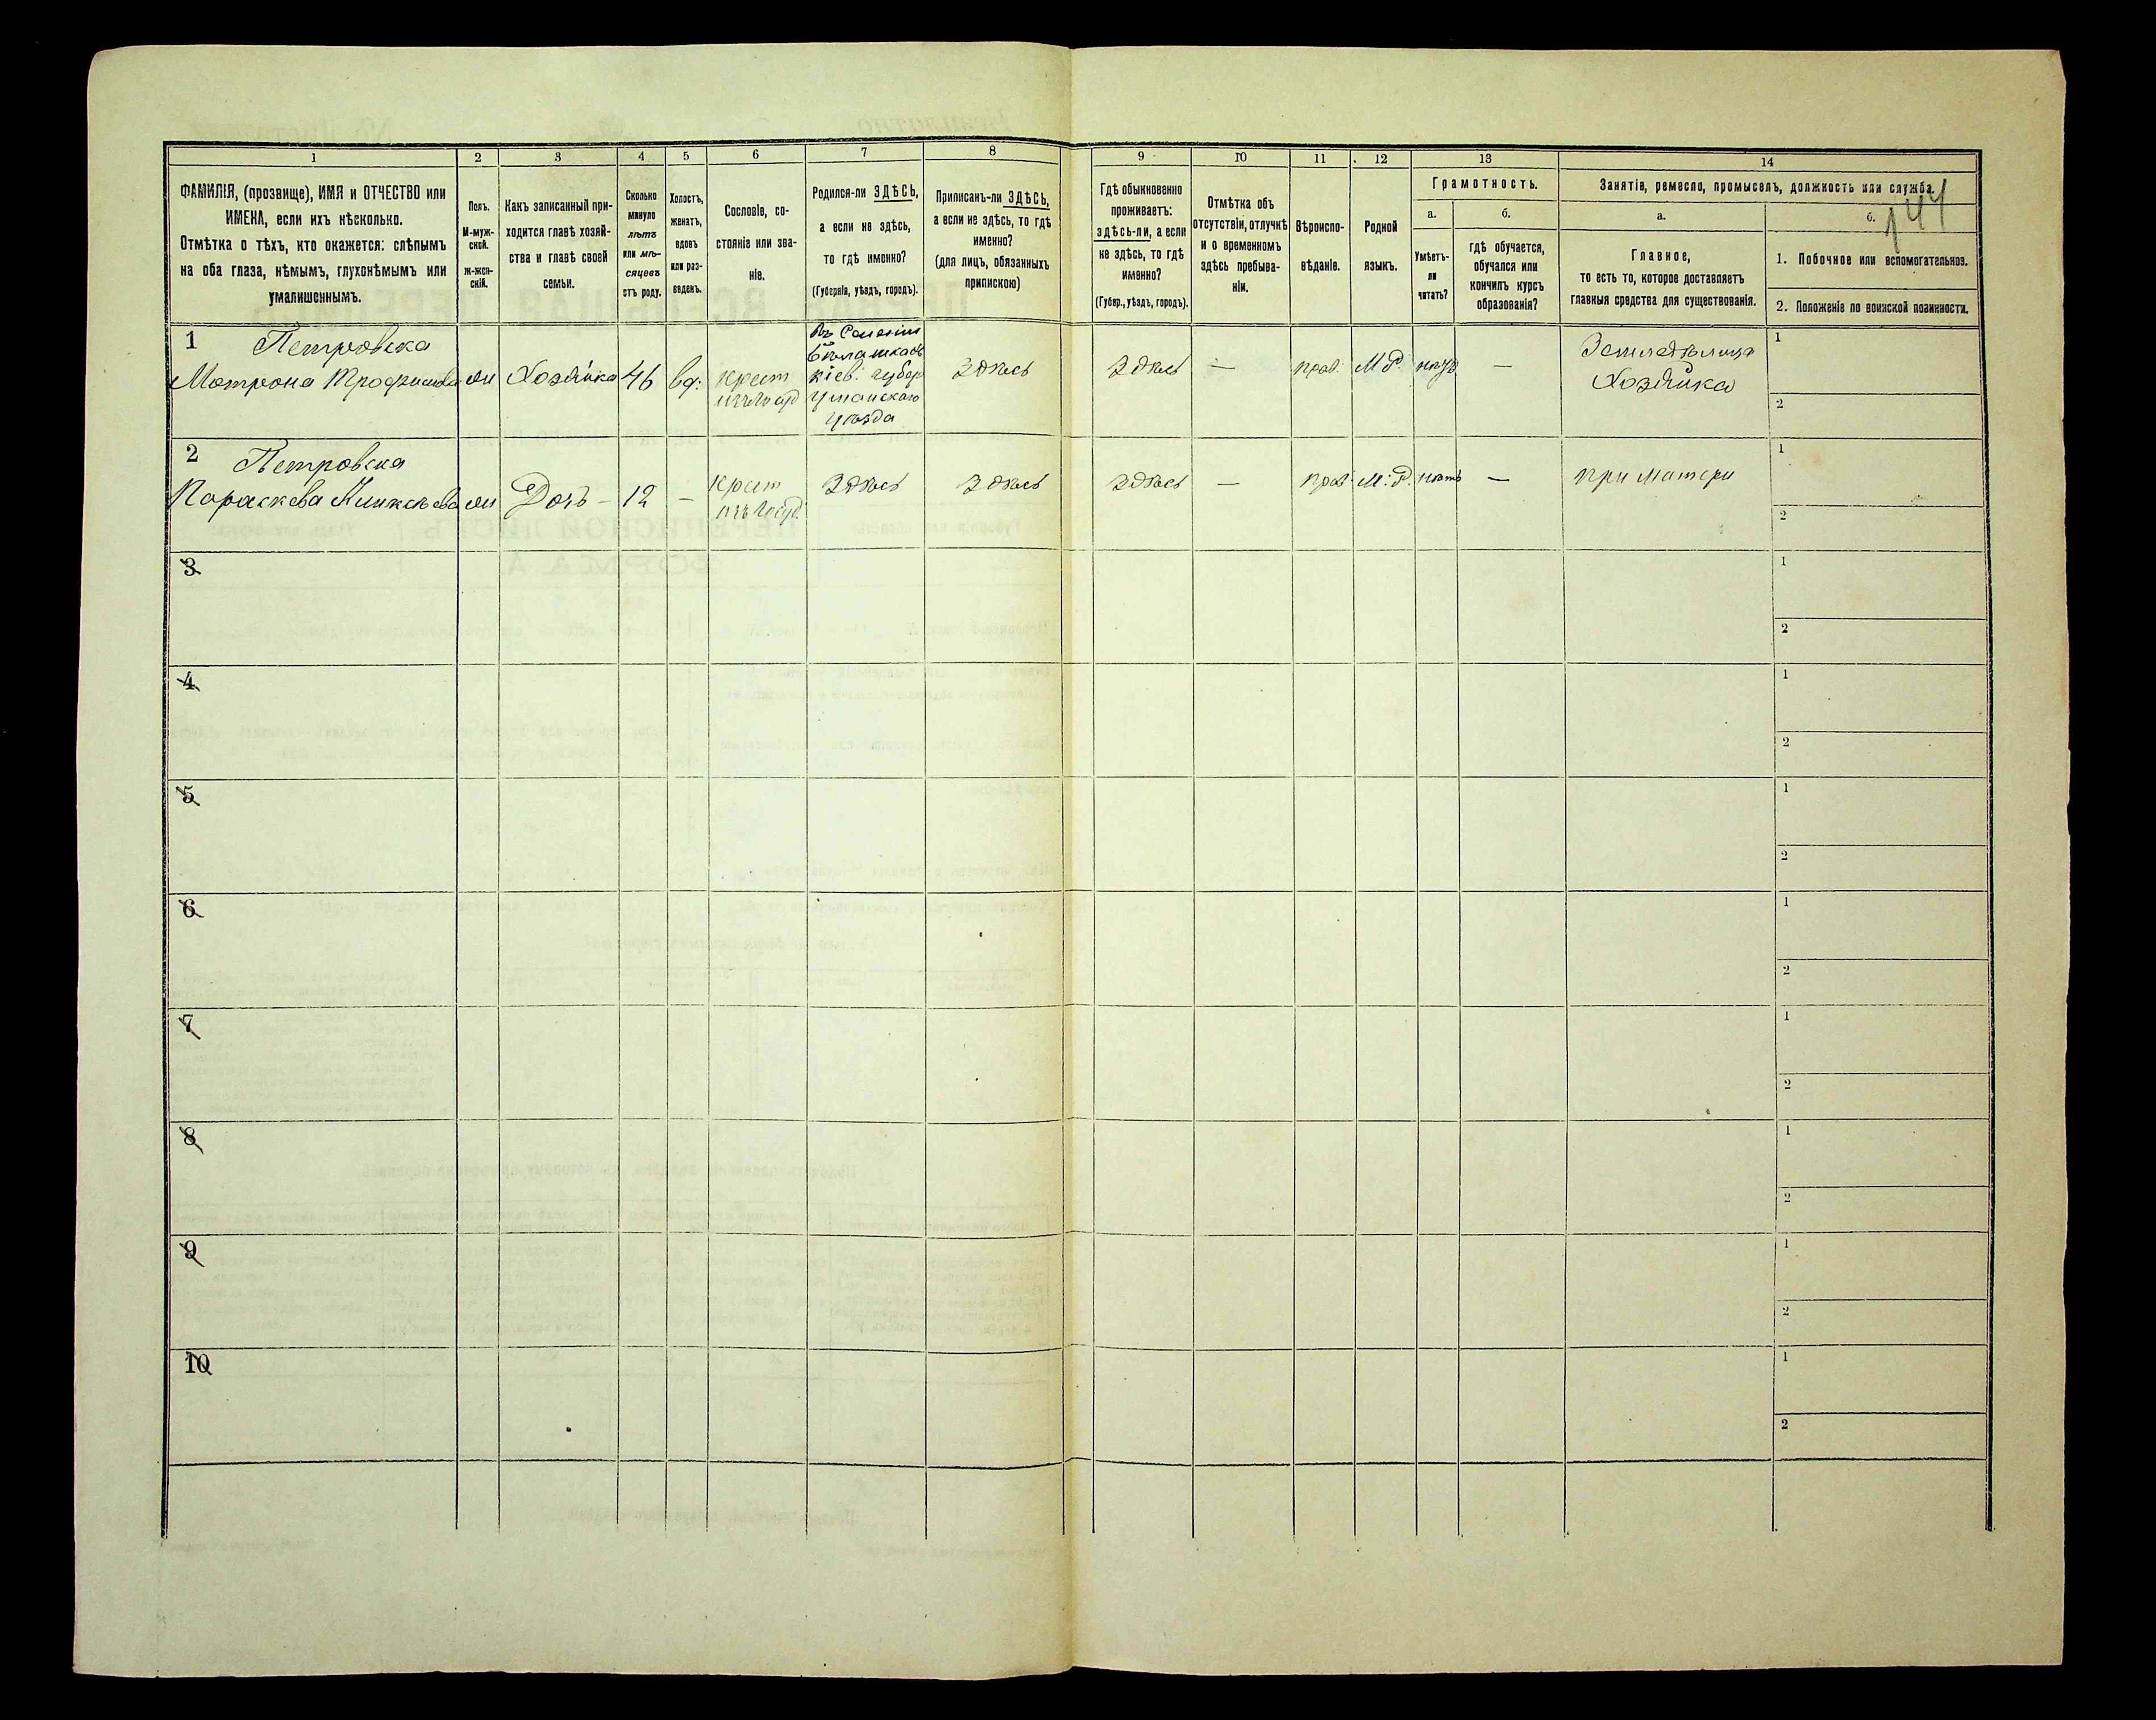 1 2 3 4 5 6 7 8 9 10 11 12 13 14
ФАМИЛІЯ, (прозвище), ИМЯ и ОТЧЕСТВО или
ИМЕНА, если ихъ нѣсколько.
Отмѣтка о тѣхъ, кто окажется: слѣпымъ
на оба глаза, нѣмымъ, глухонѣмымъ или
умалишеннымъ.
Полъ.
М-муж-
ской.
Ж-жен-
скій.
Какъ записанный при-
ходится главѣ хозяй-
ства и главѣ своей
семьи.
Сколько
минуло
лѣтъ
или мѣ-
сяцевъ
отъ роду.
Холостъ,
женатъ,
вдовъ
или раз-
веденъ.
Сословіе, со-
стояніе или зва-
ніе.
Родился-ли ЗДѢСЬ,
а если не здѣсь,
то гдѣ именно?
(Губернія, уѣздъ, городъ).
Приписанъ-ли ЗДѢСЬ,
а если не здѣсь, то гдѣ
именно?
(для лицъ, обязанныхъ
припискою)
Гдѣ обыкновенно
проживаетъ:
здѣсь-ли, а если
не здѣсь, то гдѣ
именно?
(Губер., уѣздъ, городъ).
Отмѣтка объ
отсутствіи, отлучкѣ
и о временномъ
здѣсь пребыва-
ніи.
Вѣроиспо-
вѣданіе.
Родной
языкъ.
Грамотность.
а.
Умѣетъ-
ли
читать?
б.
гдѣ обучается,
обучался или
кончилъ курсъ
образованія?
Занятіе, ремесло, промыселъ, должность или служба.
144
а.
Главное,
то есть то, которое доставляетъ
главныя средства для существованія.
б.
1. Побочное или вспомогательное.
2. Положеніе по воинской повинности.
1 Петровска
Мотрона Трофимова
Хозяйка 46 вд:
крест
изъ
Въ Селеніи
кіев: губер
Уманскаго
уѣзда
здѣсь
здѣсь — прав: М Р. —
Земледѣлица
Хозяйка
1
2
2 Петровска
Параскева
Дочь — 12 —
крест
изъ
здѣсь здѣсь здѣсь — прав: М: Р. нѣтъ — при матери
1
2
3
1
2
4
1
2
5
1
2
6
1
2
7
1
2
8
1
2
9
1
2
10
1
2